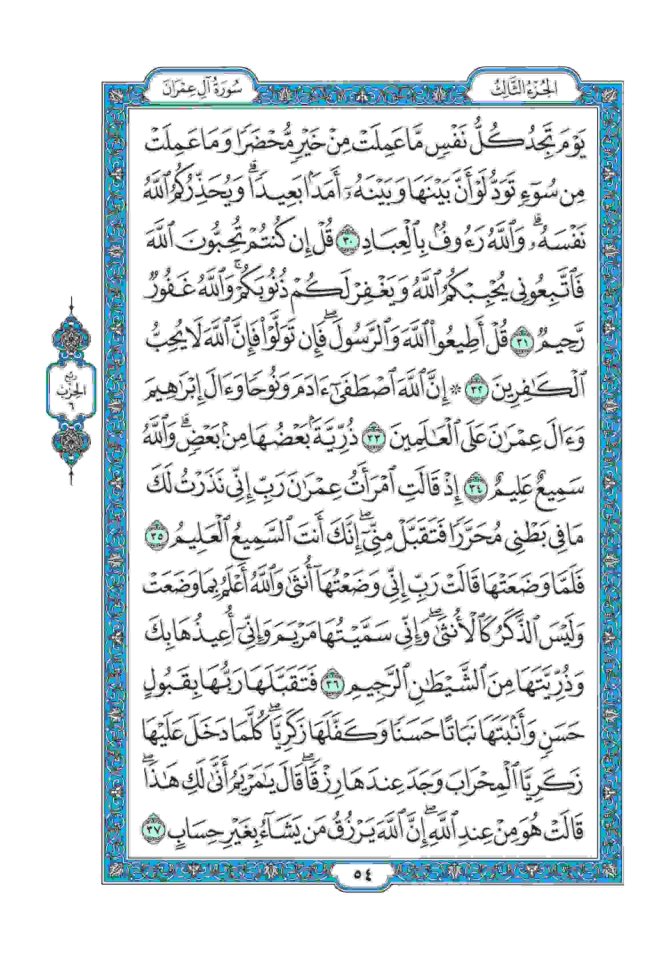 الجُزْءُ الثَّالِثُ
سُورَةُ آلِ عِمْرَانَ
يَوْمَ تَجِدُ كُلُّ نَفْسٍ مَّا عَمِلَتْ مِنْ خَيْرٍ مُّحْضَرًا وَمَا عَمِلَتْ
مِن سُوٓءٍ تَوَدُّ لَوْ أَنَّ بَيْنَهَا وَبَيْنَهُۥٓ أَمَدَۢا بَعِيدًاۗ وَيُحَذِّرُكُمُ ٱللَّهُ
نَفْسَهُۥۗ وَٱللَّهُ رَءُوفُۢ بِٱلْعِبَادِ ٣٠ قُلْ إِن كُنتُمْ تُحِبُّونَ ٱللَّهَ
فَٱتَّبِعُونِى يُحْبِبْكُمُ ٱللَّهُ وَيَغْفِرْ لَكُمْ ذُنُوبَكُمْۚ وَٱللَّهُ غَفُورٌ
رَّحِيمٌ ٣١ قُلْ أَطِيعُوا۟ ٱللَّهَ وَٱلرَّسُولَۖ فَإِن تَوَلَّوْا۟ فَإِنَّ ٱللَّهَ لَا يُحِبُّ
ٱلْكَـٰفِرِينَ ٣٢ ۞ إِنَّ ٱللَّهَ ٱصْطَفَىٰٓ ءَادَمَ وَنُوحًا وَءَالَ إِبْرَٰهِيمَ
وَءَالَ عِمْرَٰنَ عَلَى ٱلْعَـٰلَمِينَ ٣٣ ذُرِّيَّةَۢ بَعْضُهَا مِنۢ بَعْضٍۗ وَٱللَّهُ
سَمِيعٌ عَلِيمٌ ٣٤ إِذْ قَالَتِ ٱمْرَأَتُ عِمْرَٰنَ رَبِّ إِنِّى نَذَرْتُ لَكَ
مَا فِى بَطْنِى مُحَرَّرًا فَتَقَبَّلْ مِنِّىٓۖ إِنَّكَ أَنتَ ٱلسَّمِيعُ ٱلْعَلِيمُ ٣٥
فَلَمَّا وَضَعَتْهَا قَالَتْ رَبِّ إِنِّى وَضَعْتُهَآ أُنثَىٰ وَٱللَّهُ أَعْلَمُ بِمَا وَضَعَتْ
وَلَيْسَ ٱلذَّكَرُ كَٱلْأُنثَىٰۖ وَإِنِّى سَمَّيْتُهَا مَرْيَمَ وَإِنِّىٓ أُعِيذُهَا بِكَ
وَذُرِّيَّتَهَا مِنَ ٱلشَّيْطَـٰنِ ٱلرَّجِيمِ ٣٦ فَتَقَبَّلَهَا رَبُّهَا بِقَبُولٍ
حَسَنٍ وَأَنۢبَتَهَا نَبَاتًا حَسَنًا وَكَفَّلَهَا زَكَرِيَّاۖ كُلَّمَا دَخَلَ عَلَيْهَا
زَكَرِيَّا ٱلْمِحْرَابَ وَجَدَ عِندَهَا رِزْقًاۖ قَالَ يَـٰمَرْيَمُ أَنَّىٰ لَكِ هَـٰذَاۖ
قَالَتْ هُوَ مِنْ عِندِ ٱللَّهِۖ إِنَّ ٱللَّهَ يَرْزُقُ مَن يَشَآءُ بِغَيْرِ حِسَابٍ ٣٧
ربع
الحزب
٦
٥٤